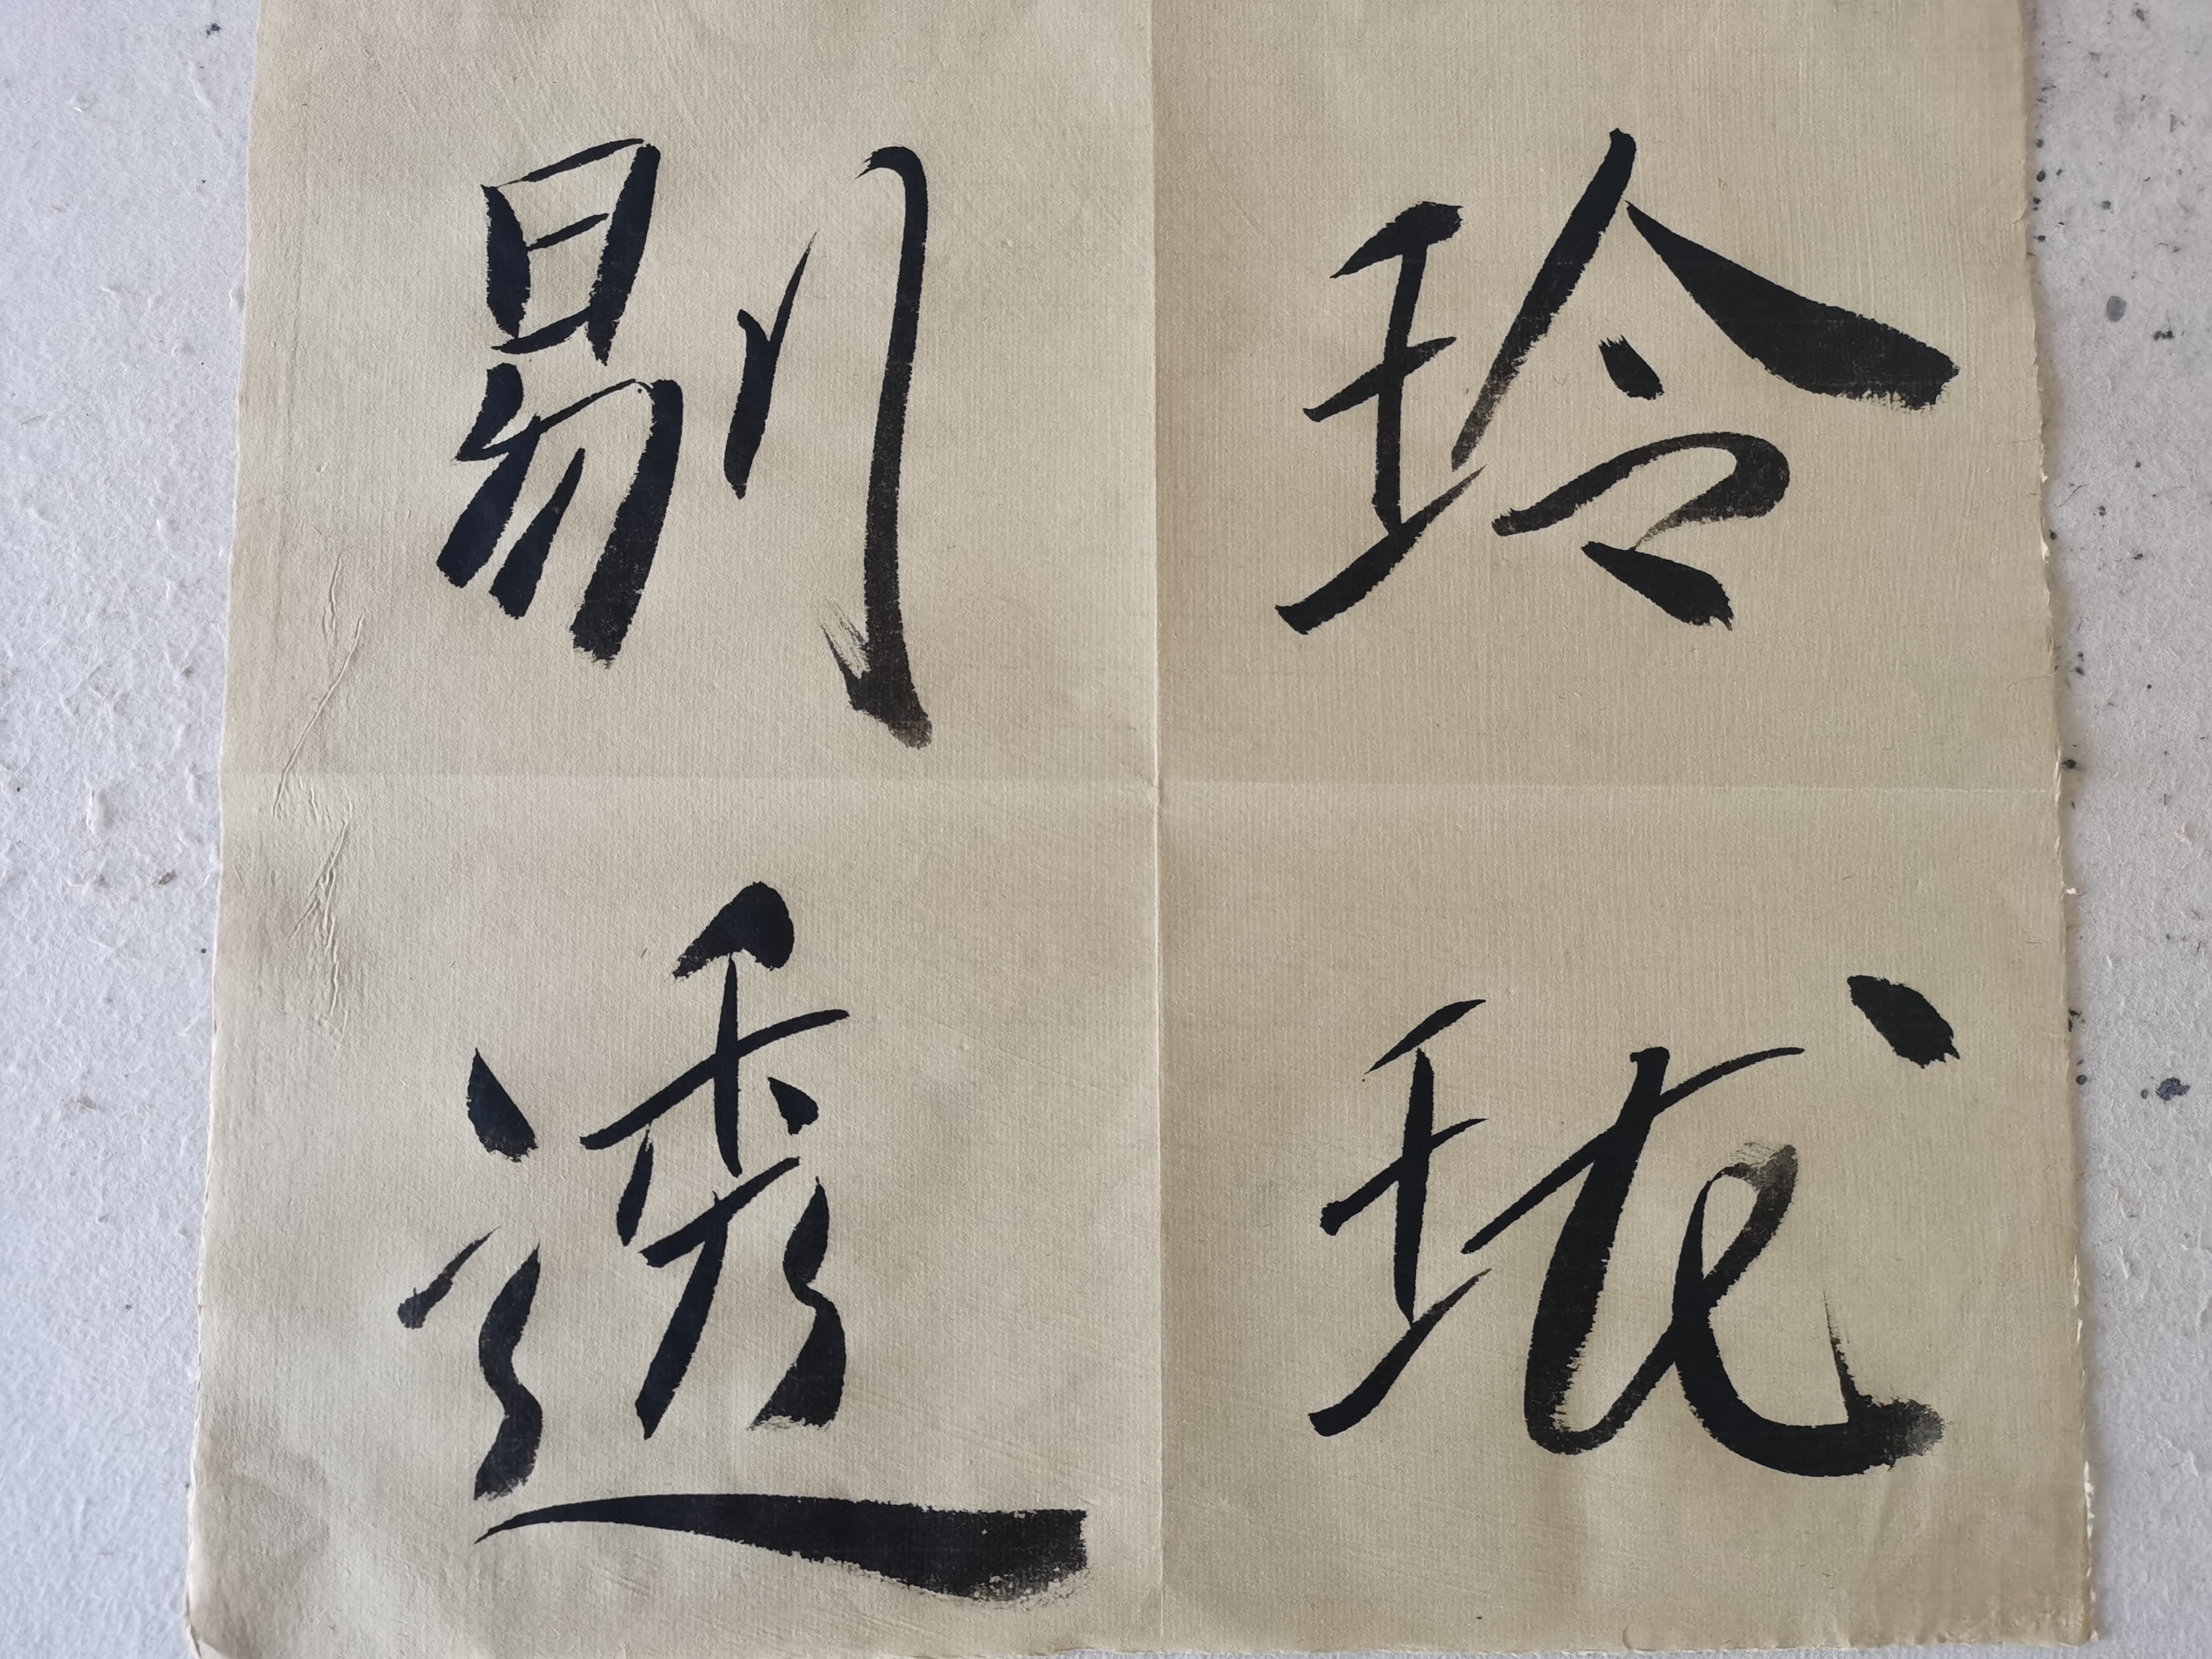 玲珑
剔透